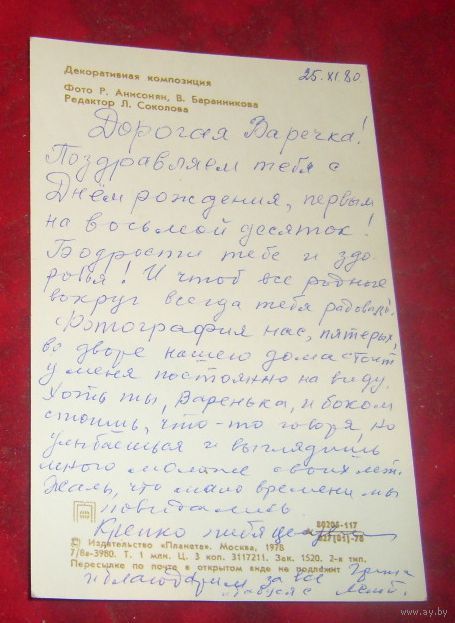 Декоративная композиция
25.XI.80
Фото Р. Анисонян, В. Баранникова
Редактор Л. Соколова
Дорогая Варечка!
Поздравляем тебя с
Днём рождения, первым
на восьмой десяток!
Бодрости тебе и здо-
ровья! И чтоб все родные
вокруг всегда тебя радовали.
Фотография нас, пятерых,
во дворе нашего дома стоит
у меня постоянно на виду.
Хоть ты, Варенька, и боком
стоишь, что-то говоря, но
улыбаешься и выглядишь
много моложе своих лет.
Жаль, что мало времени мы
повидались.
Крепко
80205-117
027(01)-78
© Издательство «Планета». Москва, 1978
7/8а-3980. Т. 1 млн. Ц. 3 коп. 3117211. Зак. 1520. 2-я тип.
Пересылке по почте в открытом виде не подлежит
и благодарим за все
www.ay.by